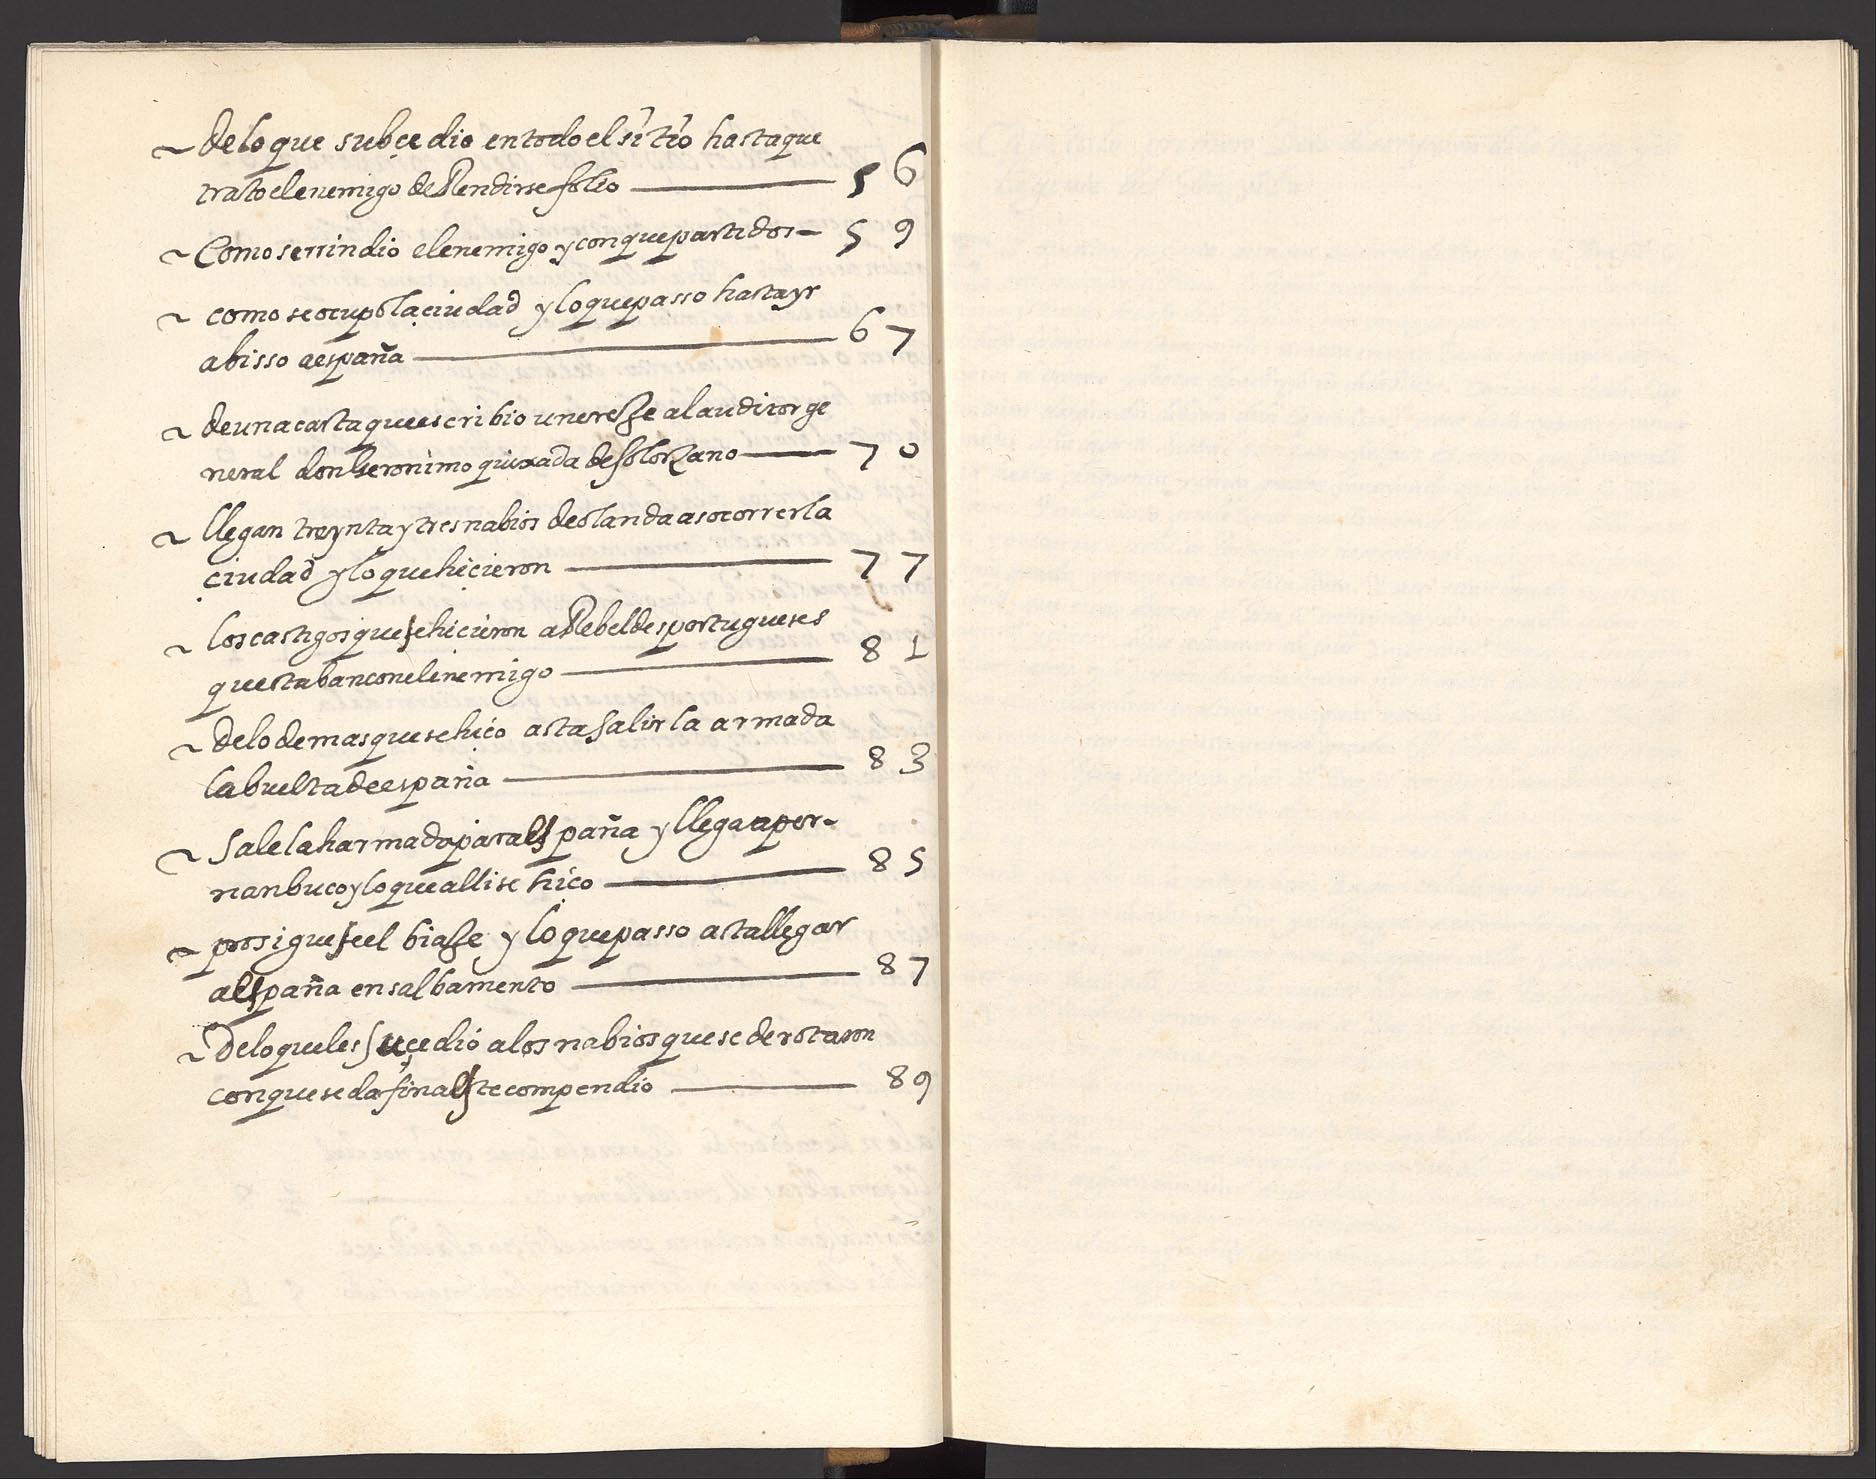 ~ de lo que subçedio en todo el sitio hasta que
trato el enemigo de Rendirse folio — 56
~ Como se rrindio el enemigo y con que partidos — 59
~ como se ocupo la çiudad y lo que passo hasta yr
abisso a españa — 67
~ de una carta que escribio un ereje al auditor ge
neral don Geronimo quixada de solorzano — 70
~ llegan treynta y tres nabios de olanda a socorrer la
çiudad y lo que hiçieron — 77
~ los castigos que se hiçieron a Rebeldes portugueses
questaban con el inemigo — 81
~ de lo demas que se hiço asta salir la armada
la buelta de españa — 83
~ sale la harmada para España y llega a per-
nanbuco y lo que alli se hiço — 85
~ prosiguese el biaje y lo que passo asta llegar
a España en salbamento — 87
~ De lo que les suçedio a los nabios que se derotaron
con que se da fin a Este compendio — 89